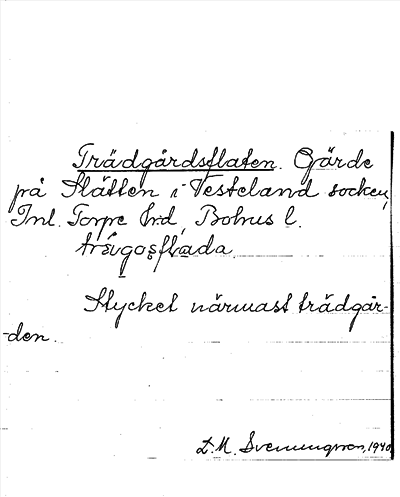 Trädgårdsflaten. Gärde
på Slätten i Vesteland socken,
Inl. Torpe hrd, Bohus l.
trǽgosflada
Stycket närmast trädgår-
-den.
D. M. Svenningson, 1940